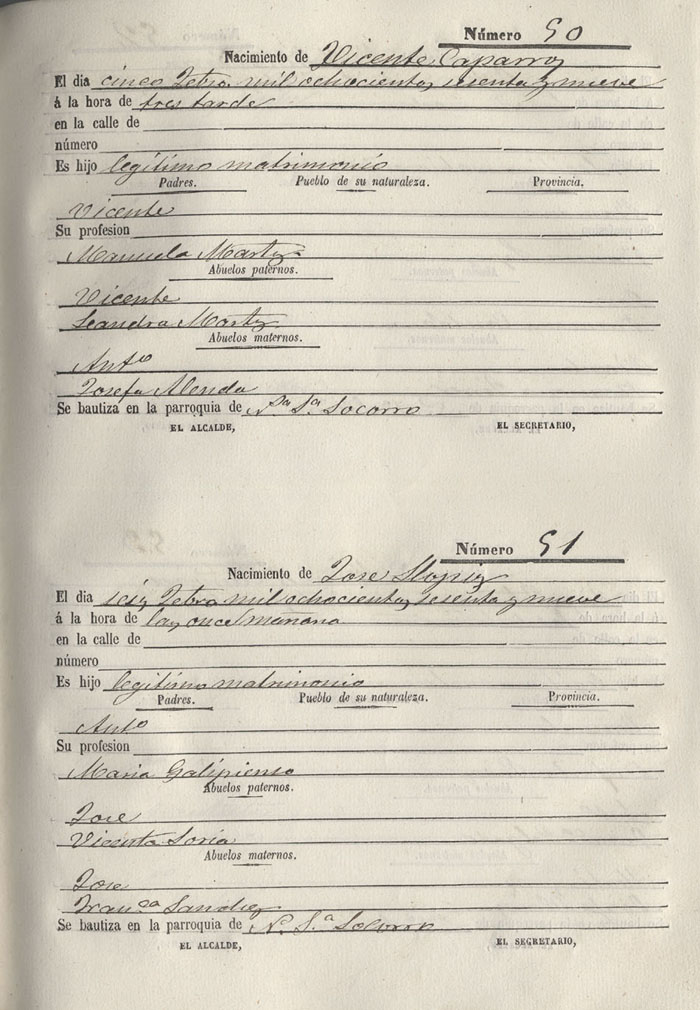 Número 50
Nacimiento de Vicente Caparros
El dia cinco Febro. mil ochocientos sesenta y nueve
á la hora de tres tarde
en la calle de
número
Es hijo legítimo matrimonio
Padres. Pueblo de su naturaleza. Provincia.
Vicente
Su profesion
Manuela Martz
Abuelos paternos.
Vicente
Leandra Martz
Abuelos maternos.
Anto
Josefa Alenda
Se bautiza en la parroquia de Na. Sa. Socorro
EL ALCALDE, EL SECRETARIO,
Número 51
Nacimiento de Jose Llopis
El dia seis Febro mil ochocientos sesenta y nueve
á la hora de las once mañana
en la calle de
número
Es hijo legítimo matrimonio
Padres. Pueblo de su naturaleza. Provincia.
Anto
Su profesion
Maria Galipienso
Abuelos paternos.
Jose
Vicenta Soria
Abuelos maternos.
Jose
Franca Sanchez
Se bautiza en la parroquia de N. Sa. Socorro
EL ALCALDE, EL SECRETARIO,